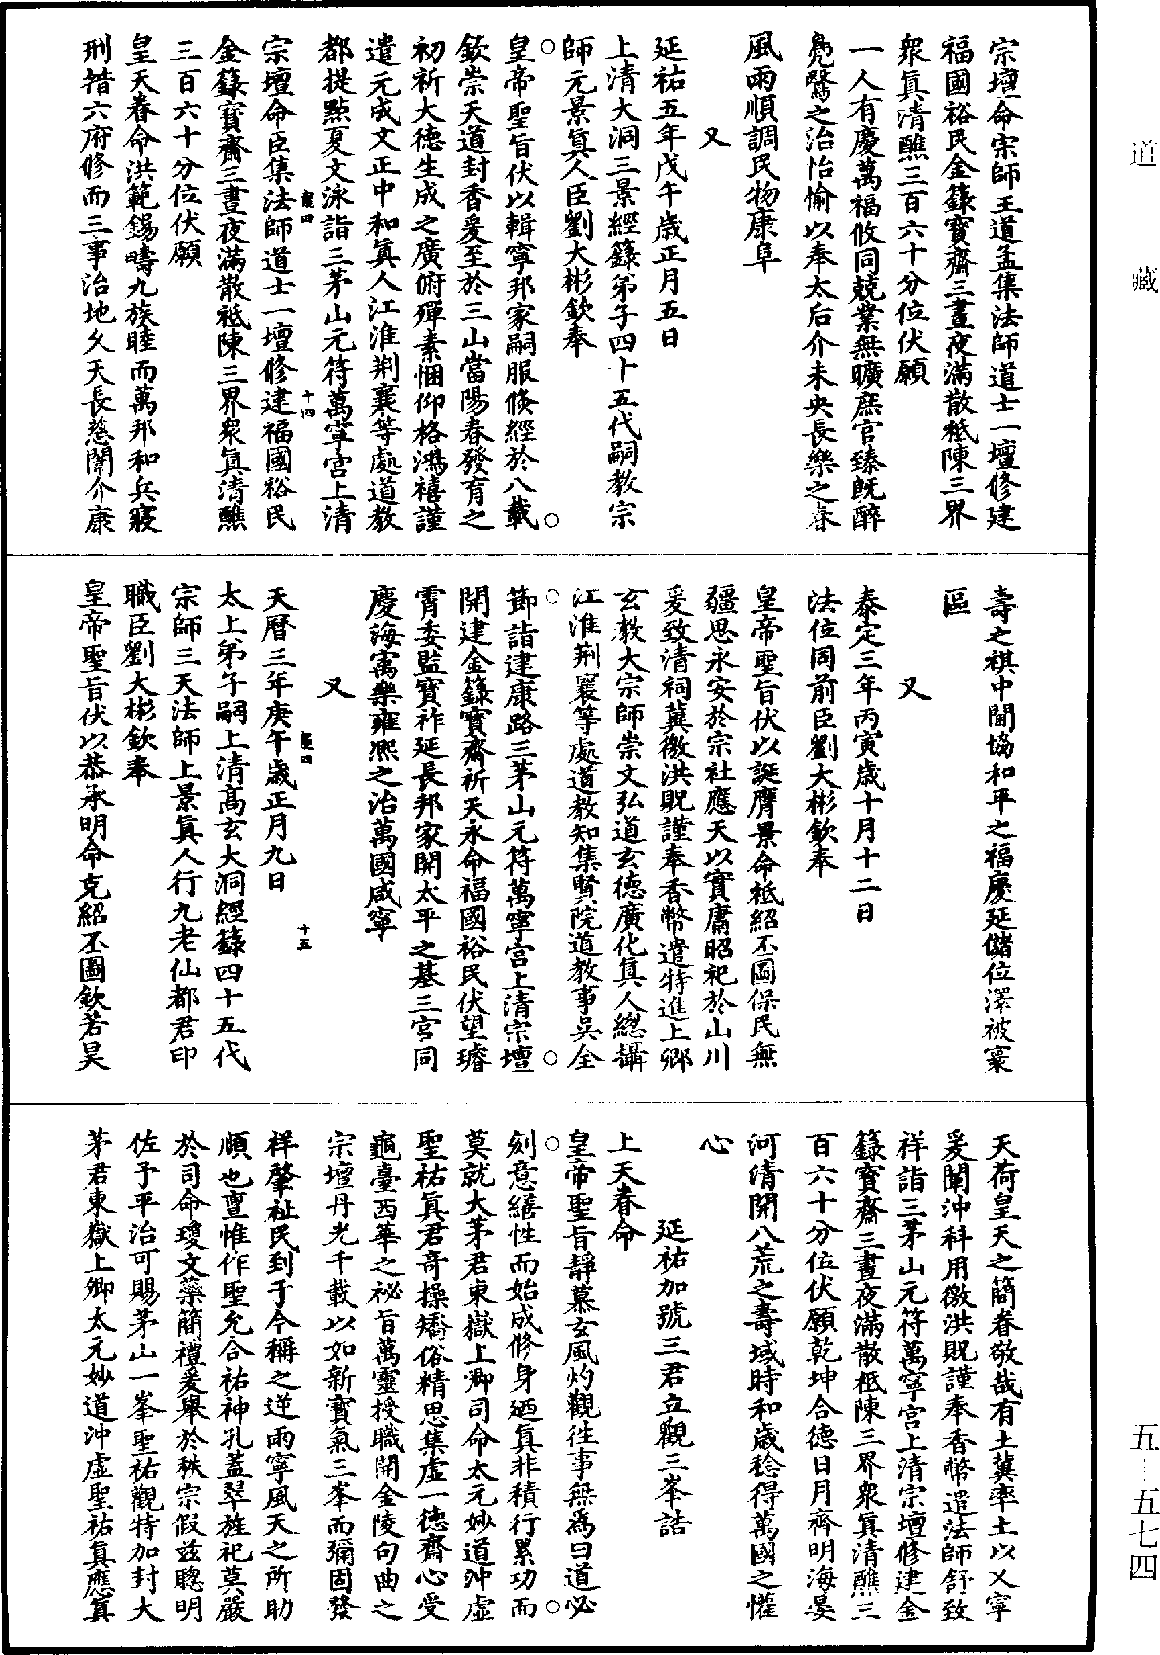 宗壇命宗師王道孟集法師道士一壇修建
福國裕民金籙寶齋三晝夜滿散祇陳三界
衆眞清醮三百六十分位伏願
一人有慶萬福攸同兢業無曠庶官臻旣醉
鳧鷖之治怡愉以奉太后介未央長樂之春
風雨順調民物康阜
又
延祐五年戊午歲正月五日
上清大洞三景經籙弟子四十五代嗣教宗
師元景眞人臣劉大彬欽奉
皇帝聖旨伏以輯寧邦家嗣服倏經於八載
欽崇天道封香爰至於三山當陽春發育之
初祈大德生成之廣俯殫素悃仰格鴻禧謹
遣元成文正中和眞人江淮荆襄等處道教
都提點夏文泳詣三茅山元符萬寧宫上清
宗壇命臣集法師道士一壇修建福國裕民
金籙寶齋三晝夜滿散祇陳三界衆眞清醮
三百六十分位伏願
皇天眷命洪範錫疇九族睦而萬邦和兵寢
刑措六府修而三事治地久天長慈闈介康
壽之祺中閫協和平之福慶延儲位澤被寰
區
又
泰定三年丙寅歲十月十二日
法位同前臣劉大彬欽奉
皇帝聖旨伏以誕膺景命祗紹丕圖保民無
疆思永安於宗社應天以實庸昭祀於山川
爰致清祠冀徼洪貺謹奉香幣遣特進上卿
玄教大宗師崇文弘道玄德廣化眞人總攝
江淮荆襄等處道教知集賢院道教事吳全
節詣建康路三茅山元符萬寧宫上清宗壇
開建金籙寶齋祈天永命福國裕民伏望璿
霄委監寶祚延長邦家開太平之基三宫同
慶海寓樂雍熙之治萬國咸寧
又
天曆三年庚午歲正月九日
太上弟子嗣上清高玄大洞經籙四十五代
宗師三天法師上景眞人行九老仙都君印
職臣劉大彬欽奉
皇帝聖旨伏以恭承明命克紹丕圖欽若昊
天荷皇天之簡眷敬哉有土冀率土以乂寧
爰闡沖科用徼洪貺謹奉香幣遣法師舒致
祥詣三茅山元符萬寧宫上清宗壇修建金
籙寶齋三晝夜滿散祇陳三界衆眞清醮三
百六十分位伏願乾坤合德日月齊明海晏
河清開八荒之壽域時和歲稔得萬國之懽
心
延祐加號三君立觀三峯誥
上天眷命
皇帝聖旨靜慕玄風灼觀往事無爲曰道必
刻意繕性而始成修身廼眞非積行累功而
莫就大茅君東嶽上卿司命太元妙道沖虛
聖祐眞君奇操矯俗精思集虛一德齋心受
龜臺西華之祕旨萬靈授職開金陵句曲之
宗壇丹光千載以如新寶氣三峯而彌固發
祥肇祉民到于今稱之逆雨寧風天之所助
順也亶惟作聖允合祐神孔蓋翠旌祀莫嚴
於司命瓊文蘂簡禮爰舉於秩宗假兹聰明
佐予平治可賜茅山一峯聖祐觀特加封大
茅君東嶽上卿太元妙道沖虛聖祐眞應眞
道藏
五—五七四
十四
十五